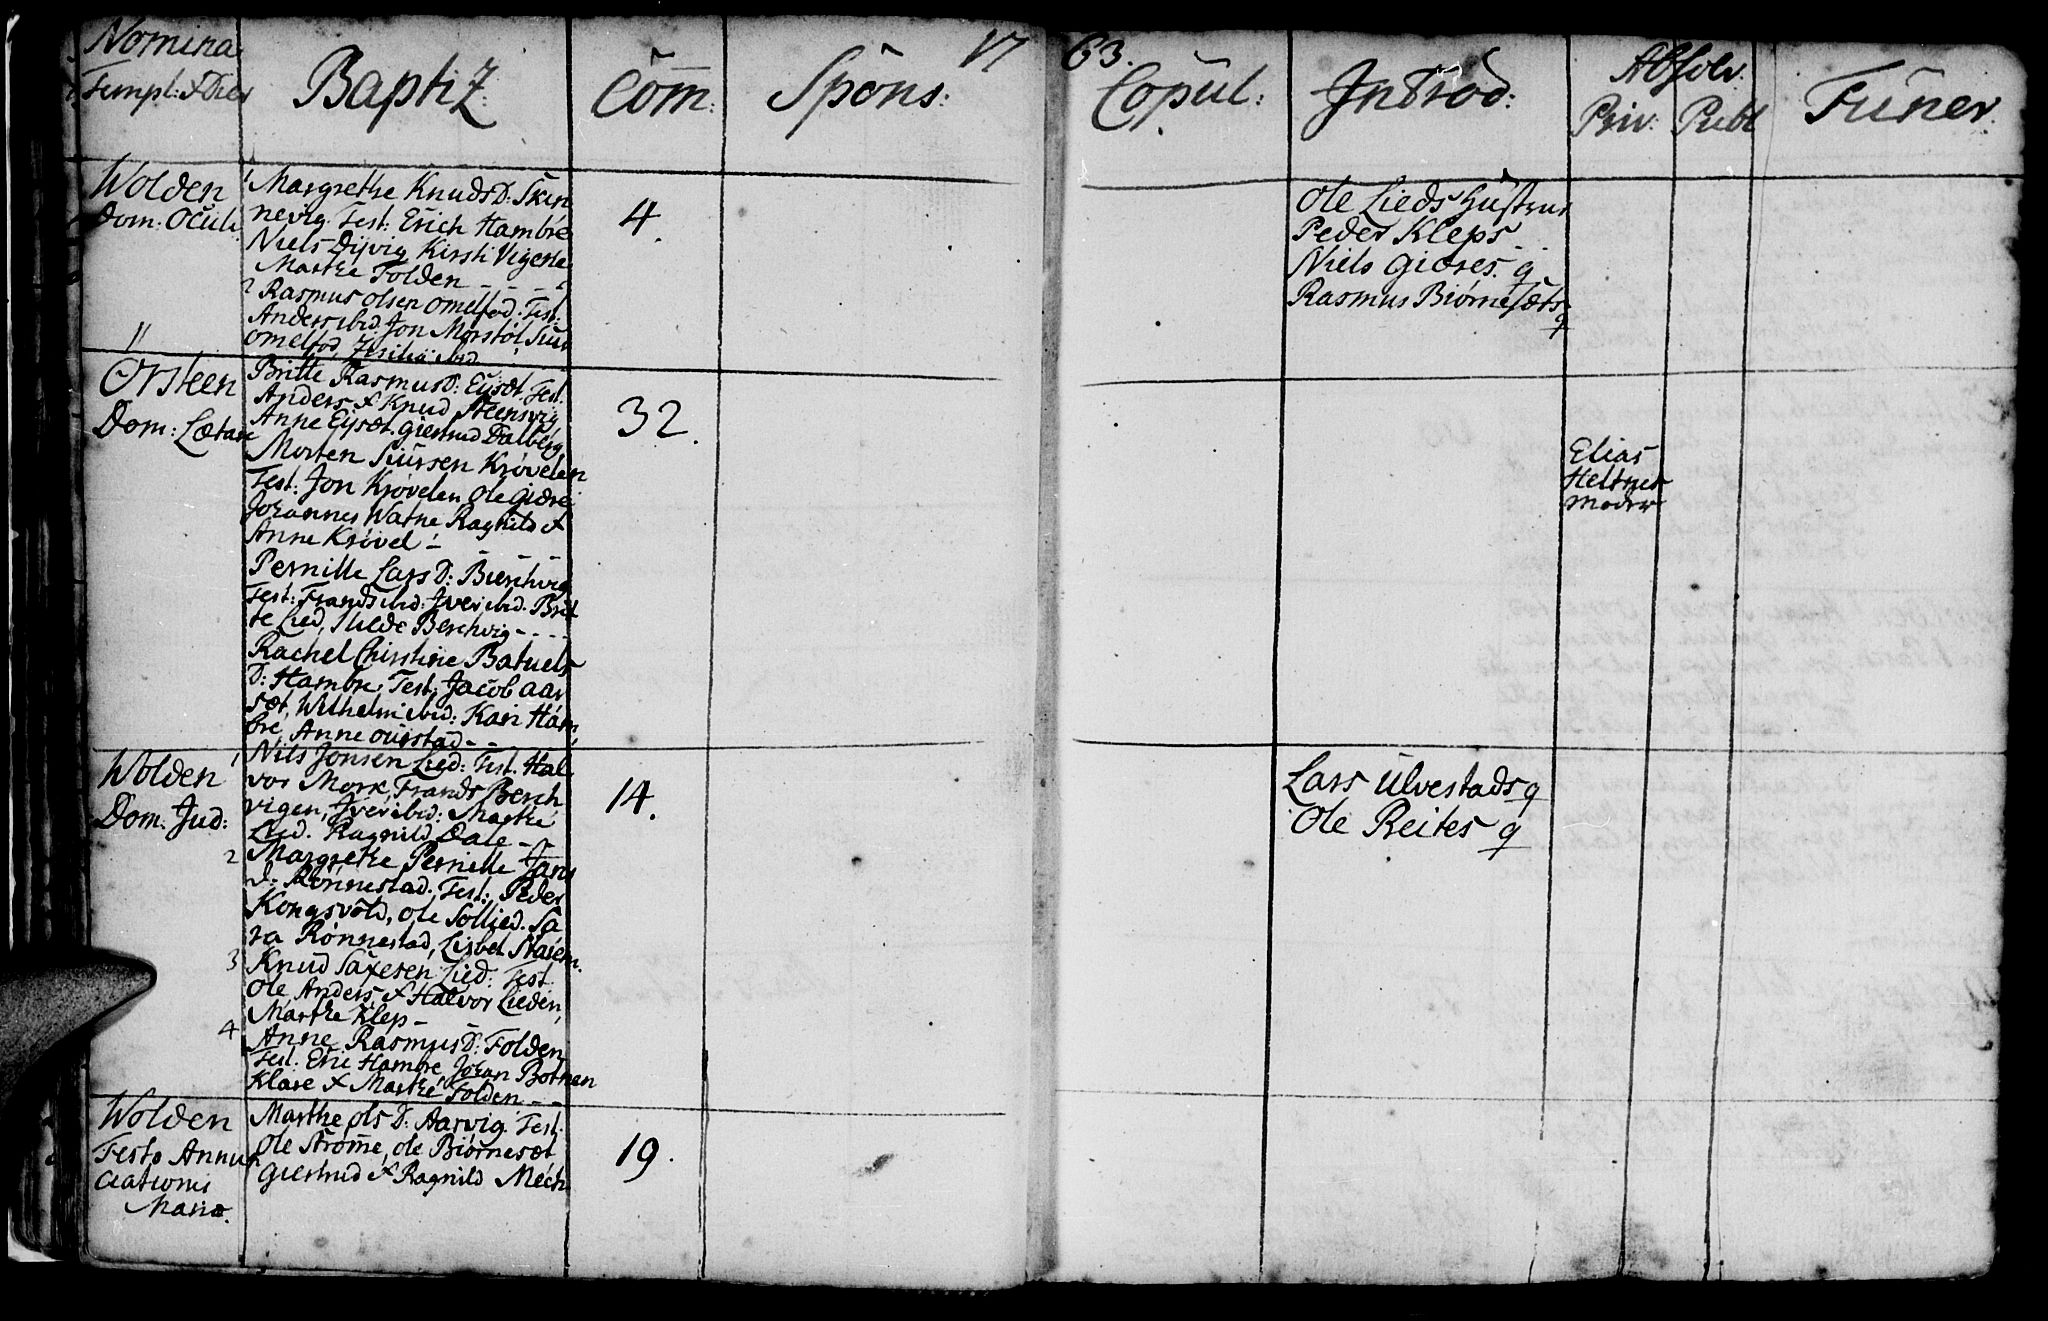 Nomina
Templ: & Dier
Baptiz:
Com:
Spons:
17
63.
Copul:
Introd:
Absolv.
Priv:
Publ
Funer.
Wolden
Dom: Oculi.
1 Margrethe KnudsD: Skin
nevig. Test: Erich Hambre
Niels Dijvig Kirsti Vigerte
Marthe Folden
2 Rasmus Olsen Omelfod. Test:
Anders ibid. Jon Morstøl, Siur
Omelfod, ibid
4.
Ole Lieds Hustrue
Peder Kleps
Niels Giøres. q
Rasmus Biørnesæts
q
Ørsteen
Dom: Lætare
Britte RasmusD: Eijsæt. Test.
Anders & Knud Steensvig
Anne Eijsæt. Giertrud Dalberg
Morten Siursen Krøvelen
Test: Jon Krøvelen Ole Giøre
Johannes Watne Raghild &
Anne Krøvel
Pernille Lars D: Bierchvig
Test: Frands ibid: Iver ibid. Brit
te Lied, Hilde Berchvig
Rachel Christine Batuels
D: Hambre, Test: Jacob Aar
sæt, Wilhelm ibid: Kari Ham
bre, Anne Ourstad
32.
Elias
Heltnes
Moder
Wolden
Dom: Jud:
1 Nils Jonsen Lied: Test. Hal
vor Mork, Frands Berch
vigen, Iver ibid: Marthe
Lied. Ragnild Dale
2 Margrethe Pernille Jans
D: Rønnestad. Test: Peder
Kongsvold, Ole Sollied. Sa
ra Rønnestad, Lisbet
3 Knud Saxesen Lied: Test
Ole Anders, & Halvor Lieden,
Marthe Klep
4 Anne RasmusD: Folden
Test: Eric Hambre Johan Botnen
Klare & Marthe Folden
14.
Lars Ulvestads q
Ole Reites q
Wolden
Festo Annun
ciationis
Mariæ.
Marthe Ols D: Aarvig. Test.
Ole Strømme, Ole Biørnesæt
Giertrud & Ragnild Mech
19.